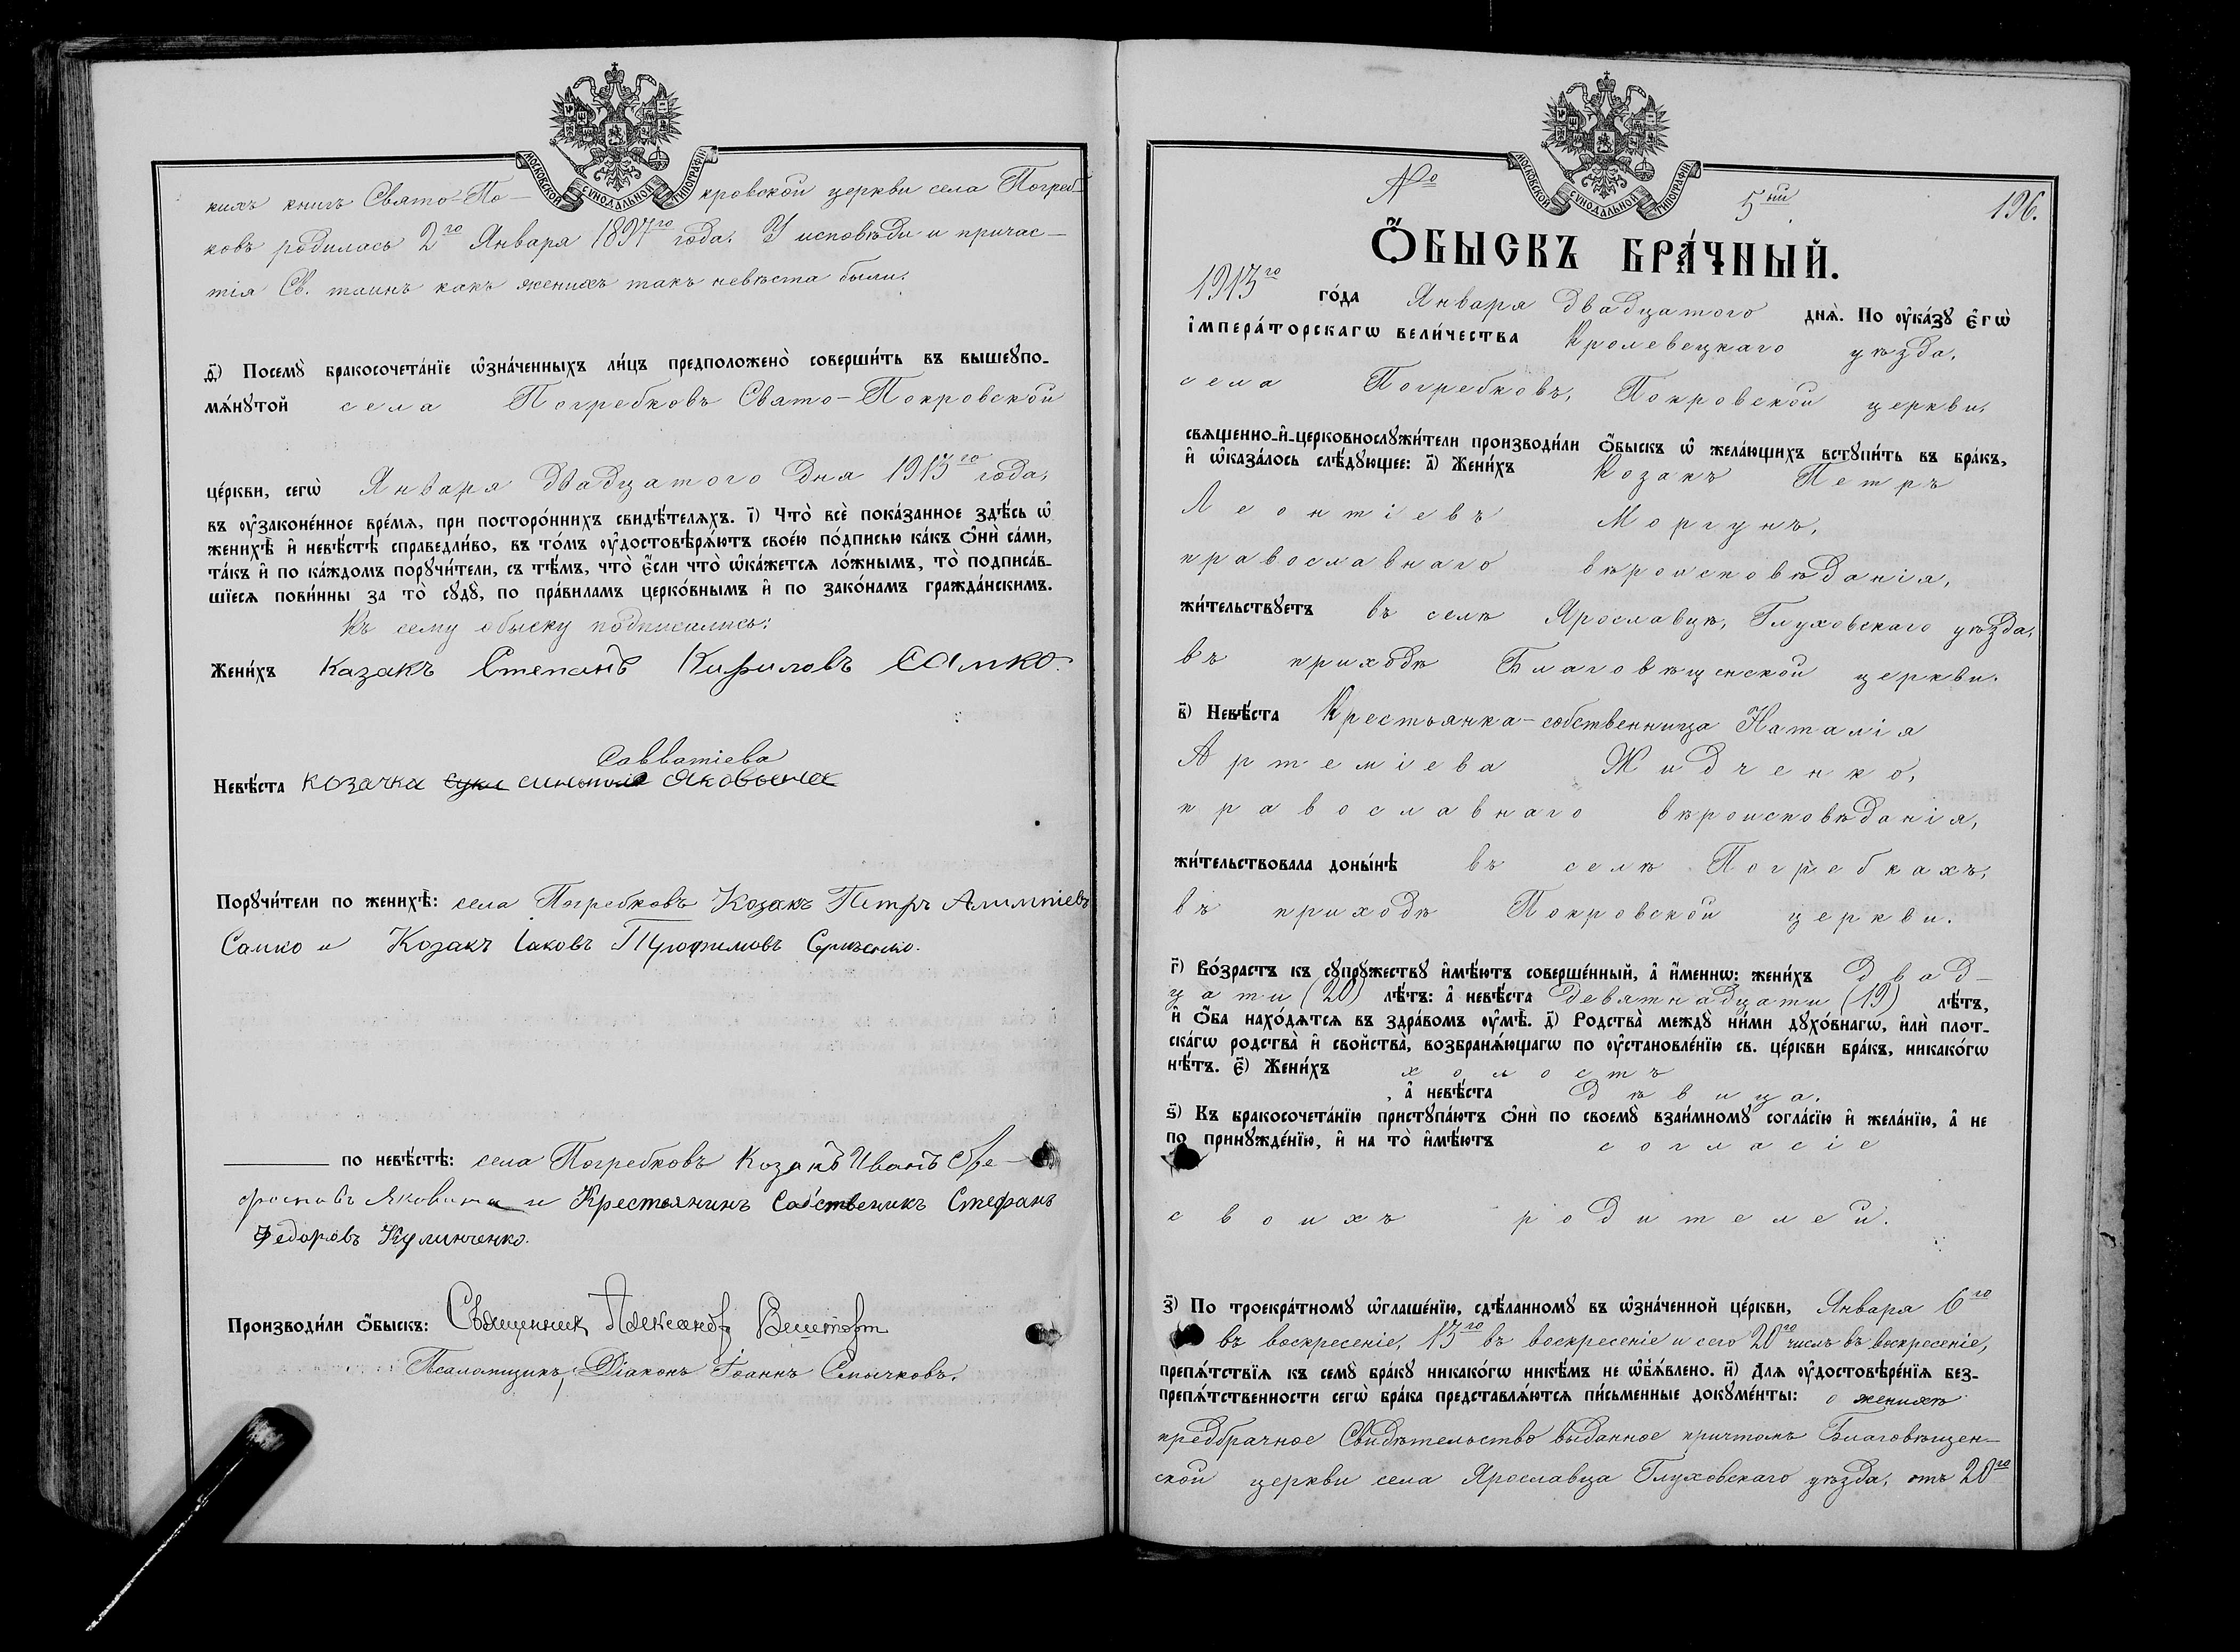 МОСКОВСКОЙ СУНОДАЛЬНОЙ ТИПОГРАФІИ
кихъ книгъ Свято-По- кровской церкви села Погреб-
ковъ родилась 2го Января 1897го года. У исповѣди и причас-
тія Св. таинъ какъ женихъ такъ невѣста были.
д҃) Посемꙋ̀ бракосочета́нїе ѡ҆зна́ченныхъ ли́цъ предположено̀ соверши́ть въ вышеꙋпо-
мѧ́нꙋтой села Погребковъ Свято-Покровской
це́ркви, сегѡ̀ Января двадцатого дня 1913го года,
въ оу҆законе́нное вре́мѧ, при посторо́ннихъ свидѣ́телѧхъ. і҃) Что̀ всѐ пока́занное здѣ́сь ѡ҆
женихѣ̀ и҆ невѣ́стѣ справедли́во, въ то́мъ оу҆достовѣрѧ́ютъ свое́ю по́дписью ка́къ ѻ҆нѝ са́ми,
та́къ и҆ по ка́ждомъ порꙋчи́тели, съ тѣ́мъ, что̀ є҆́сли что̀ ѡ҆ка́жетсѧ ло́жнымъ, то̀ подписа́в-
шїесѧ пови́нны за то̀ сꙋдꙋ̀, по пра́виламъ церко́внымъ и҆ по зако́намъ гражда́нскимъ.
Къ сему обыску подписались:
Жени́хъ Казакъ Степанъ Кириловъ Самко.
Савватіева
Невѣ́ста козачка
Порꙋчи́тели по женихѣ̀: села Погребковъ Козакъ Петръ Алимпіевъ
Самко и Козакъ Іаковъ Трофимовъ
по невѣ́стѣ: села Погребковъ Козакъ Иванъ
и Крестьянинъ Собственикъ Стефанъ
Федоровъ Кулинченко.
Производи́ли ѻ҆́быскъ: Священник Александр
Псаломщикъ, Діаконъ Іоаннъ Смычковъ.
МОСКОВСКОЙ СУНОДАЛЬНОЙ ТИПОГРАФІИ
№ 5ый 196.
Ѻ҆́БЫСКЪ БРА́ЧНЫЙ.
1913го го́да Января двадцатого днѧ̀. По оу҆ка́зꙋ є҆гѡ̀
і҆мпера́торскагѡ вели́чества Кролевецкаго уѣзда,
села Погребковъ, Покровской церкви,
свѧщенно-и҆-церковнослꙋжи́тели производи́ли ѻ҆́быскъ ѡ҆ жела́ющихъ встꙋпи́ть въ бра́къ,
и҆ ѡ҆каза́лось слѣ́дꙋющее: а҃) Жени́хъ Козакъ Петръ
Леонтіевъ Моргунъ,
православнаго вѣроисповѣданія,
жи́тельствꙋетъ въ селѣ Ярославцѣ, Глуховскаго уѣзда,
въ приходѣ Благовѣщенской церкви.
в҃) Невѣ́ста Крестьянка-собственница Наталія
Артеміева Жидченко,
православнаго вѣроисповѣданія,
жи́тельствовала доны́нѣ въ селѣ Погребкахъ,
въ приходѣ Покровской церкви.
г҃) Во́зрастъ къ сꙋпрꙋжествꙋ и҆мѣ́ютъ соверше́нный, а҆ и҆́меннѡ: жени́хъ двад-
цати (20) лѣ́тъ: а҆ невѣ́ста девятнадцати (19) лѣ́тъ,
и҆ ѻ҆́ба нахо́дѧтсѧ въ здра́вомъ оу҆мѣ̀. д҃) Родства̀ междꙋ̀ ни́ми дꙋхо́внагѡ, и҆лѝ плот-
ска́гѡ родства̀ и҆ свойства̀, возбранѧ́ющагѡ по оу҆становле́нїю св. це́ркви бра́къ, никако́гѡ
нѣ́тъ. є҃) Жени́хъ холостъ
, а҆ невѣ́ста дѣвица.
ѕ҃) Къ бракосочета́нїю пристꙋпа́ютъ ѻ҆нѝ по своемꙋ̀ взаи́мномꙋ согла́сїю и҆ жела́нїю, а҆ не
по принꙋжде́нїю, и҆ на то̀ и҆мѣ́ютъ согласіе
своихъ родителей.
з҃) По троекра́тномꙋ ѡ҆глаше́нїю, сдѣ́ланномꙋ въ ѡ҆зна́ченной це́ркви, Января 6го
въ воскресеніе, 13го въ воскресеніе и сего 20го числъ въ воскресеніе,
препѧ́тствїѧ къ семꙋ̀ бра́кꙋ никако́гѡ никѣ́мъ не ѡ҆б̾ѧ́влено. и҃) Для оу҆достовѣре́нїѧ без-
препѧ́тственности сегѡ̀ бра́ка представлѧ́ютсѧ пи́сьменные докꙋме́нты: о женихѣ
предбрачное Свидѣтельство выданное причтомъ Благовѣщен-
ской церкви села Ярославца Глуховскаго уѣзда, отъ 20го